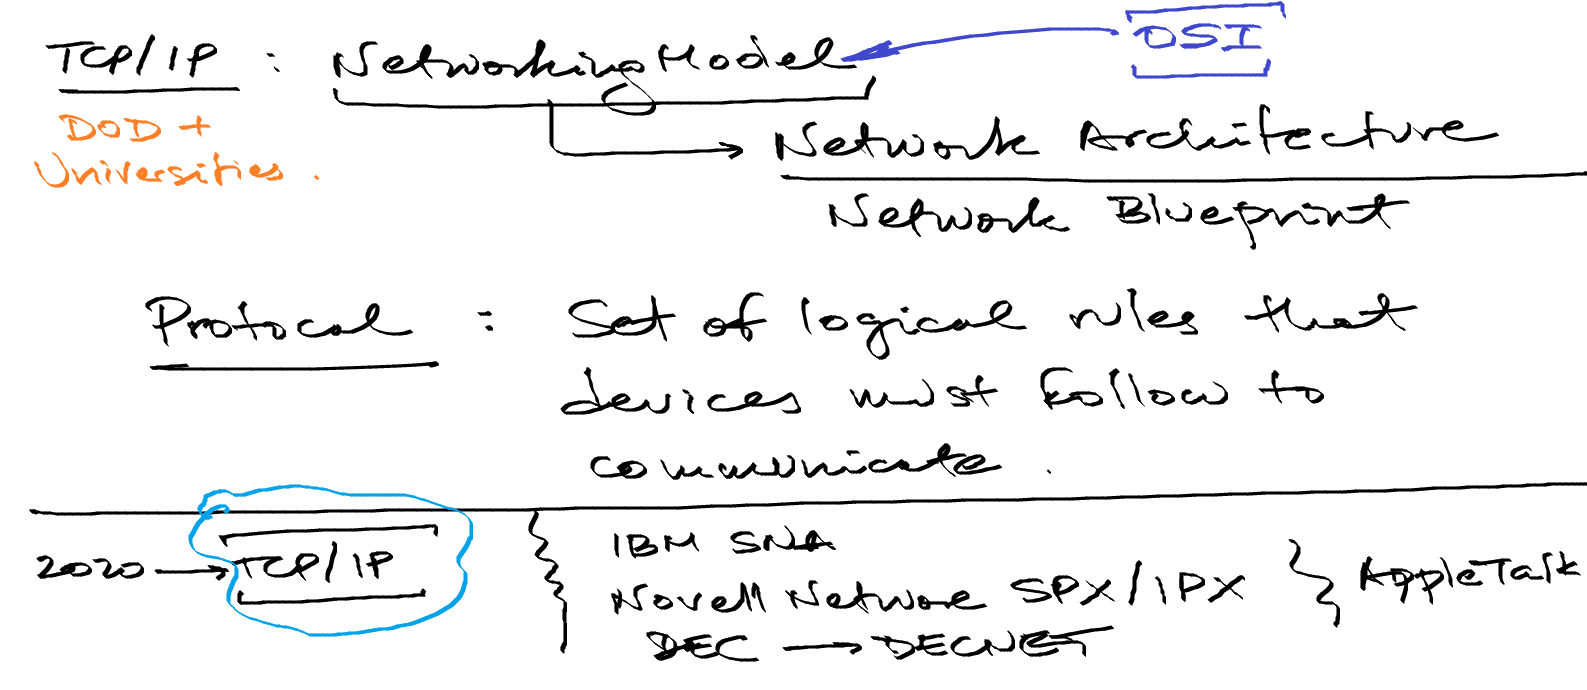 TCP/IP : Networking Model OSI
DOD +
Universities.
Network Architecture
Network Blueprint
Protocol : Set of logical rules that
devices must follow to
communicate.
2020 → TCP/IP
IBM SNA
Novell Netware SPX/IPX
DEC → DECNET
AppleTalk